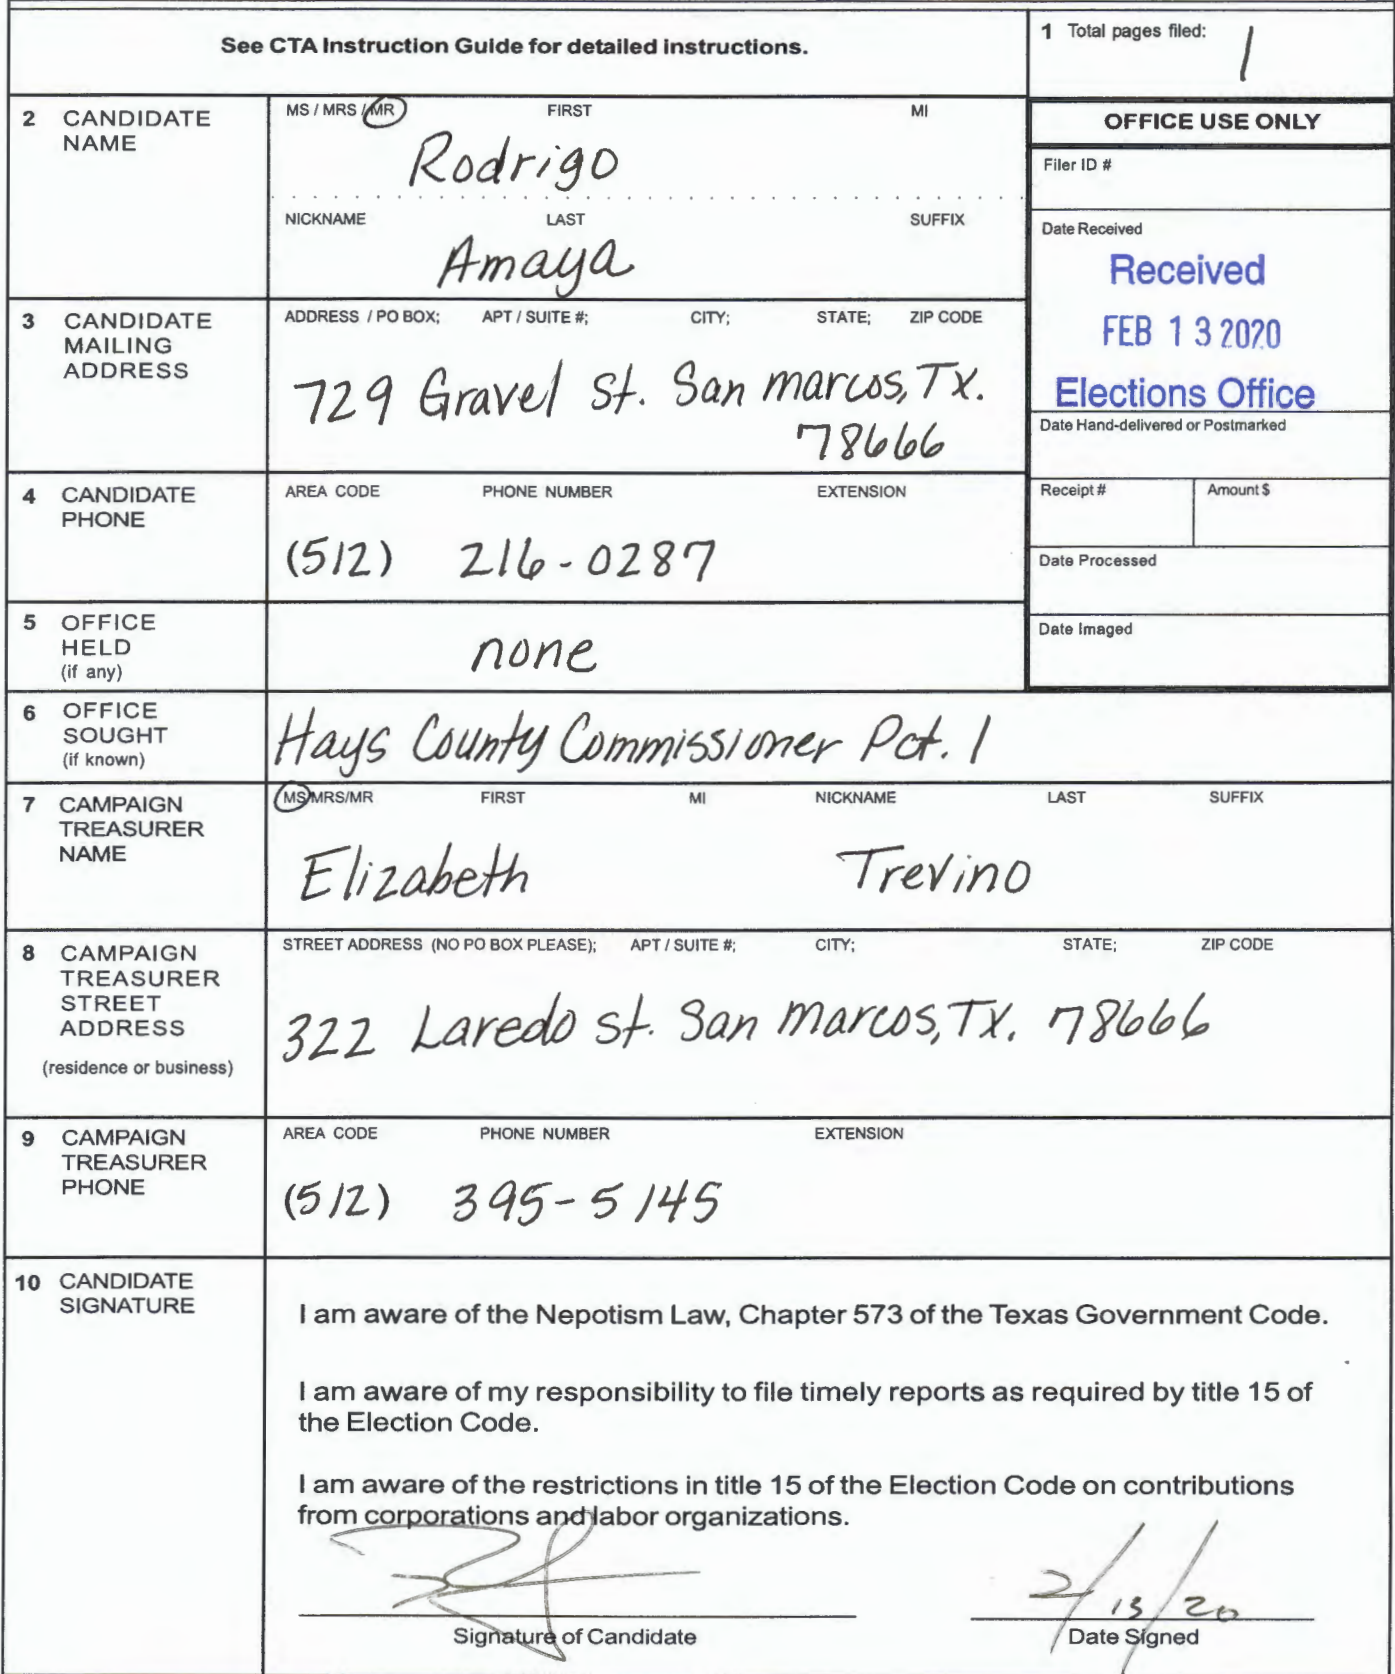 See CTA Instruction Guide for detailed instructions.
1 Total pages filed: 1
2 CANDIDATE NAME
MS / MRS / MR FIRST MI
Rodrigo
NICKNAME LAST SUFFIX
Amaya
OFFICE USE ONLY
Filer ID #
Date Received
Received
FEB 13 2020
Elections Office
Date Hand-delivered or Postmarked
Receipt # Amount $
Date Processed
Date Imaged
3 CANDIDATE MAILING ADDRESS
ADDRESS / PO BOX; APT / SUITE #; CITY; STATE; ZIP CODE
729 Gravel St. San marcos, Tx.
78666
4 CANDIDATE PHONE
AREA CODE PHONE NUMBER EXTENSION
(512) 216-0287
5 OFFICE HELD (if any)
none
6 OFFICE SOUGHT (if known)
Hays County Commissioner Pct. 1
7 CAMPAIGN TREASURER NAME
MS/MRS/MR FIRST MI NICKNAME LAST SUFFIX
Elizabeth Trevino
8 CAMPAIGN TREASURER STREET ADDRESS
(residence or business)
STREET ADDRESS (NO PO BOX PLEASE); APT / SUITE #; CITY; STATE; ZIP CODE
322 Laredo st. San marcos, Tx. 78666
9 CAMPAIGN TREASURER PHONE
AREA CODE PHONE NUMBER EXTENSION
(512) 395-5145
10 CANDIDATE SIGNATURE
I am aware of the Nepotism Law, Chapter 573 of the Texas Government Code.
I am aware of my responsibility to file timely reports as required by title 15 of
the Election Code.
I am aware of the restrictions in title 15 of the Election Code on contributions
from corporations and labor organizations.
2/13/20
Signature of Candidate Date Signed